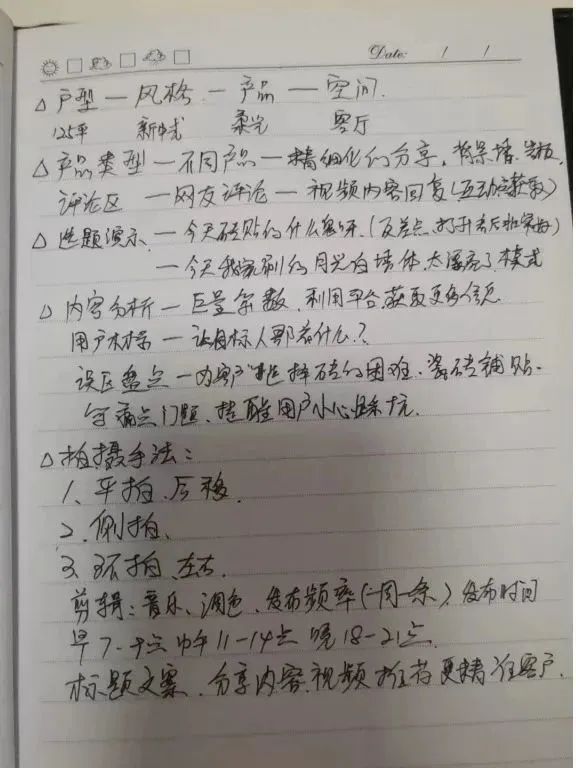 Date: / /
△ 户型 — 风格 — 产品 — 空间
125平 新中式 柔光 客厅
△ 产品类型 — 不同产品 — 精细化的分享, 背景墙、岩板
评论区 — 网友评论 — 视频内容回复(互动获取)
△ 选题演示 — 今天砖贴的什么
— 今天我家刷的月光白墙体太漂亮了 模式
△ 内容分析 — 巨量算数, 利用平台获取更多信息
用户 — 让目标人群看什么?
误区盘点 — 为客户选择砖的困难、瓷砖铺贴、
等痛点门题、提醒用户小心踩坑.
△ 拍摄手法:
1、平拍、后移.
2、侧拍、
3、环拍、左右.
剪辑: 音乐、调色、发布频率(一周一条)、发布时间
早7-9点 中午11-14点 晚18-21点.
标题文案、分享内容、视频推荐更精准客户.